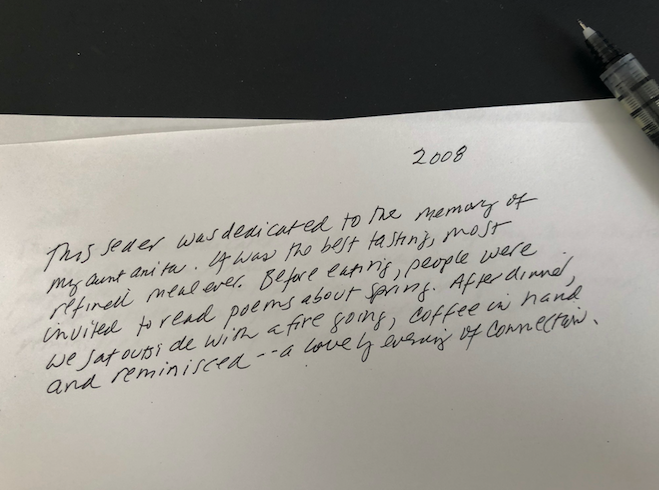 2008
This seder was dedicated to the memory of
my aunt anita. It was the best tasting, most
refined meal ever. Before eating, people were
invited to read poems about spring. After dinner,
we sat outside with a fire going, coffee in hand
and reminisced -- a lovely evening of connection.